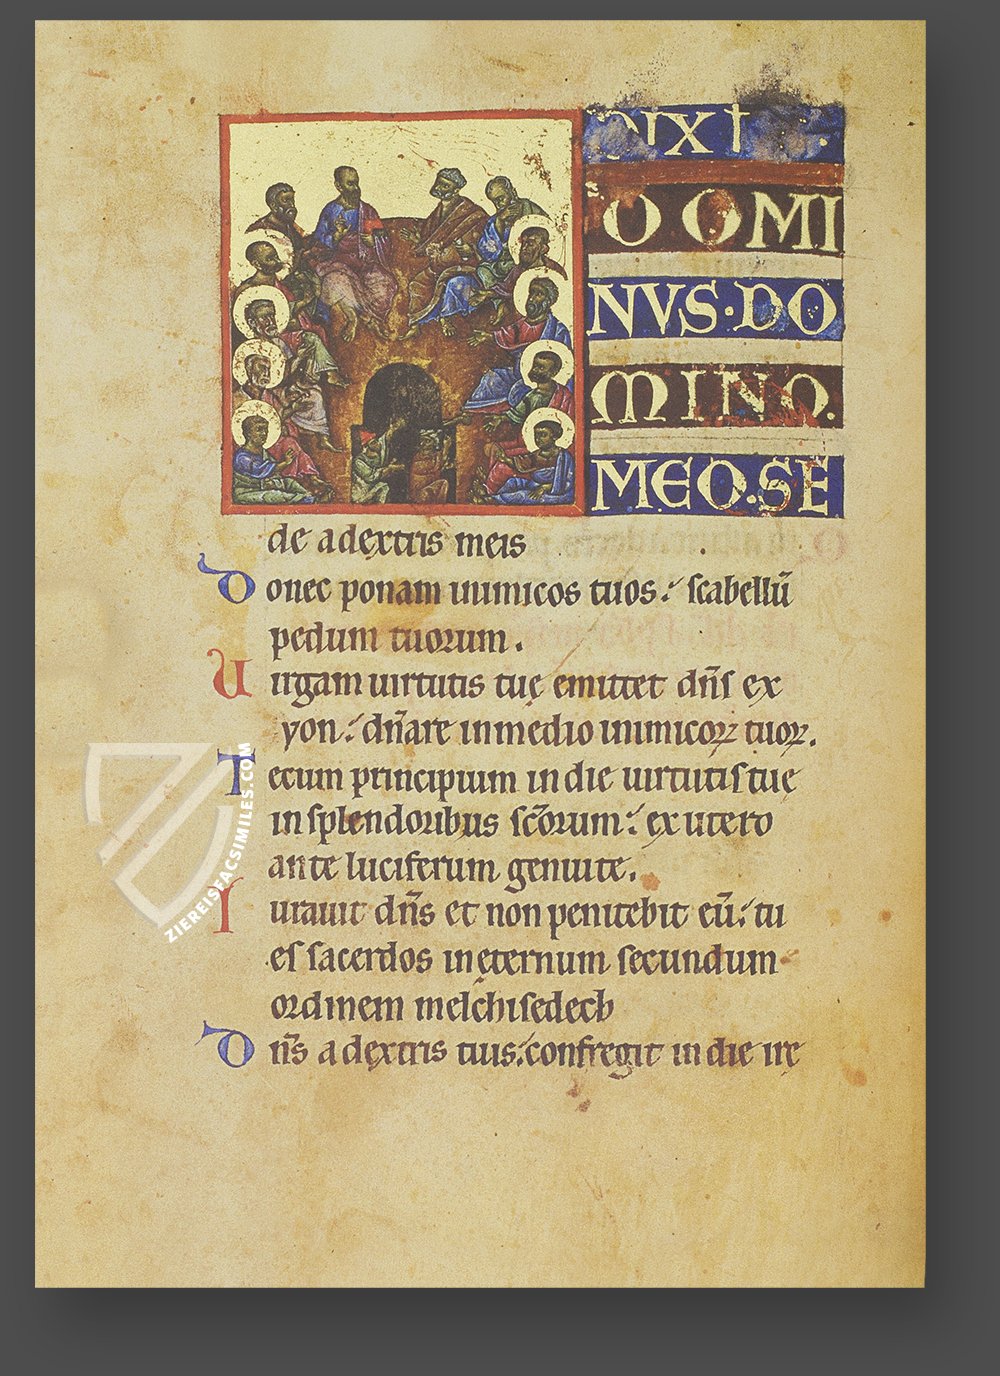 DIXIT
DOMI
NVS·DO
MINO.
MEO·SE
de adextris meis
Donec ponam inimicos tuos: scabellū
pedum tuorum.
Uirgam uirtutis tuę emittet dn̄s ex
syon: dn̄are in medio inimicoꝝ tuoꝝ.
Tecum principium in die uirtutis tuę
in splendoribus sc̄orum: ex utero
ante luciferum genui te.
Iurauit dn̄s et non penitebit eū: tu
es sacerdos in ęternum secundum
ordinem melchisedech
Dn̄s a dextris tuis: confregit in die irę
ZIEREISFACSIMILES.COM